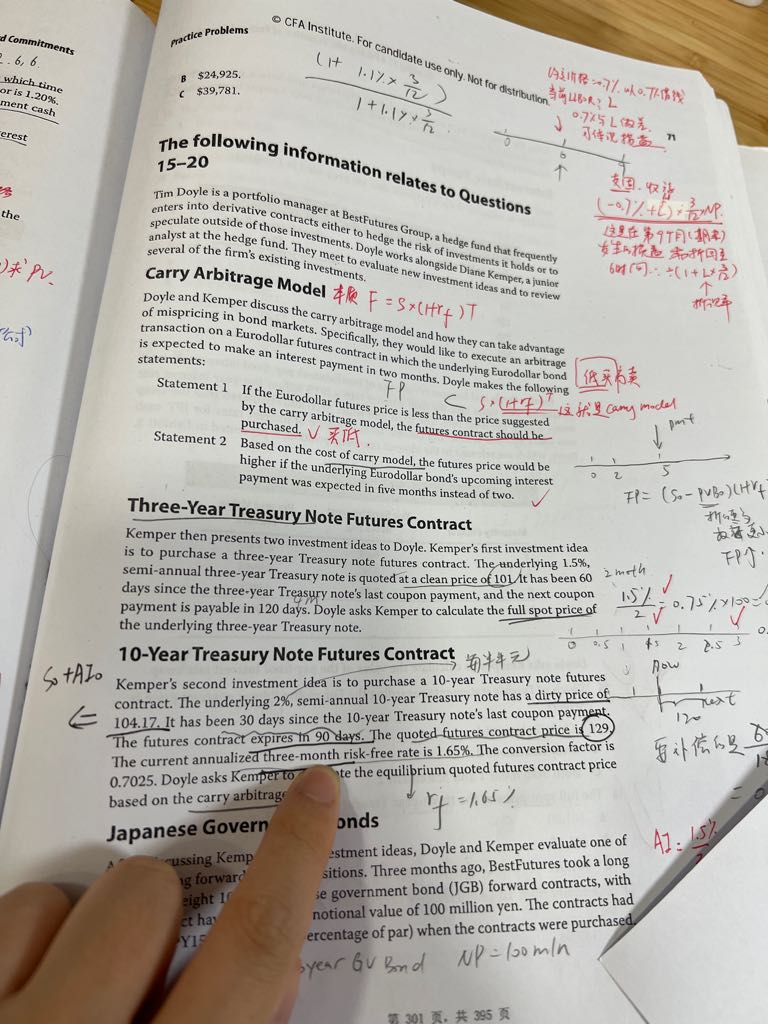 d Commitments
2. 6, 6.
which time
or is 1.20%.
ment cash
erest
the
)求 PV.
Practice Problems
© CFA Institute. For candidate use only. Not for distribution.
B $24,925.
C $39,781.
(1+ 1.1% × 3/12)
1+1.1% × 3/12
约定价格=0.7%
L
0.7%与L做差
n
0 6
(-0.7%+L)×3/12×NP.
÷(1+L×3/12)
折现率
The following information relates to Questions
15–20
Tim Doyle is a portfolio manager at BestFutures Group, a hedge fund that frequently
enters into derivative contracts either to hedge the risk of investments it holds or to
speculate outside of those investments. Doyle works alongside Diane Kemper, a junior
analyst at the hedge fund. They meet to evaluate new investment ideas and to review
several of the firm's existing investments.
Carry Arbitrage Model 本质 F = S×(1+rf)T
Doyle and Kemper discuss the carry arbitrage model and how they can take advantage
of mispricing in bond markets. Specifically, they would like to execute an arbitrage
transaction on a Eurodollar futures contract in which the underlying Eurodollar bond
is expected to make an interest payment in two months. Doyle makes the following
statements:
低买高卖
FP < S×(1+rf)T 这就是carry model
Statement 1 If the Eurodollar futures price is less than the price suggested
by the carry arbitrage model, the futures contract should be
purchased. √ 买低.
Statement 2 Based on the cost of carry model, the futures price would be
higher if the underlying Eurodollar bond's upcoming interest
payment was expected in five months instead of two.
pmt
0 2 5
FP= (S0 - PVB0)(1+rf
FP↑.
Three-Year Treasury Note Futures Contract
Kemper then presents two investment ideas to Doyle. Kemper's first investment idea
is to purchase a three-year Treasury note futures contract. The underlying 1.5%,
semi-annual three-year Treasury note is quoted at a clean price of 101. It has been 60
days since the three-year Treasury note's last coupon payment, and the next coupon
payment is payable in 120 days. Doyle asks Kemper to calculate the full spot price of
the underlying three-year Treasury note.
2 moth
1.5%/2 = 0.75%×100=
0 0.5 1 1.5 2 2.5 3
now
next
120
10-Year Treasury Note Futures Contract
S0 + AI0
Kemper's second investment idea is to purchase a 10-year Treasury note futures
contract. The underlying 2%, semi-annual 10-year Treasury note has a dirty price of
104.17. It has been 30 days since the 10-year Treasury note's last coupon payment.
The futures contract expires in 90 days. The quoted futures contract price is 129.
The current annualized three-month risk-free rate is 1.65%. The conversion factor is
0.7025. Doyle asks Kemper to te the equilibrium quoted futures contract price
based on the carry arbitrage
rf = 1.65%
AI = 1.5%/2
Japanese Govern onds
cussing Kemp estment ideas, Doyle and Kemper evaluate one of
ng forward sitions. Three months ago, BestFutures took a long
eight 10 se government bond (JGB) forward contracts, with
ct hav notional value of 100 million yen. The contracts had
PY15 ercentage of par) when the contracts were purchased.
year GV Bond NP=100mln
第 301 页, 共 395 页